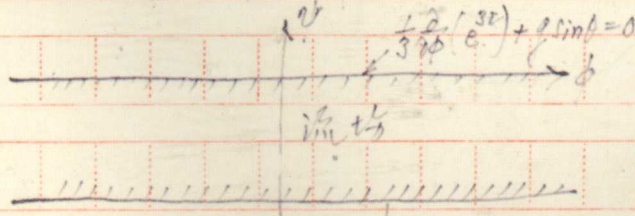 ψ
1/3 ∂/∂φ (e^{3τ}) + g sinθ = 0
φ
流场